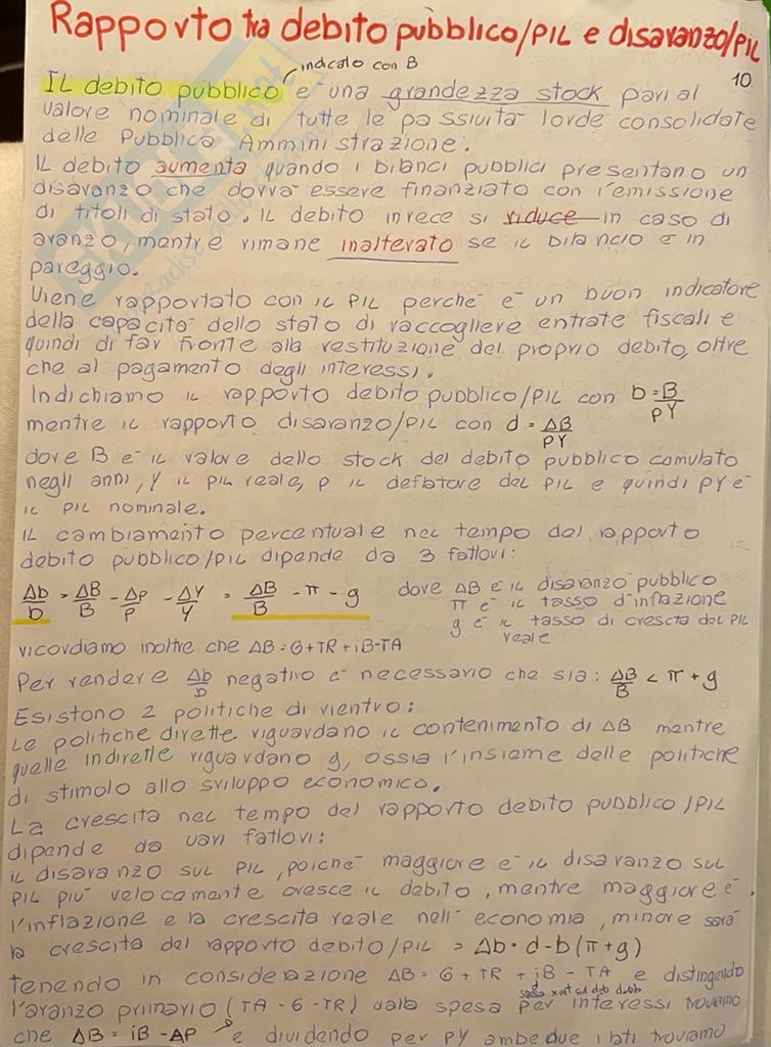 Rapporto tra debito pubblico/PIL e disavanzo/PIL
indicato con B
10
IL debito pubblico è una grandezza stock pari al
valore nominale di tutte le passività lorde consolidate
delle Pubblica Amministrazione.
IL debito aumenta quando i bilanci pubblici presentano un
disavanzo che dovrà essere finanziato con l'emissione
di titoli di stato. IL debito invece si riduce in caso di
avanzo, mentre rimane inalterato se il bilancio è in
pareggio.
Viene rapportato con il PIL perché è un buon indicatore
della capacità dello stato di raccogliere entrate fiscali e
quindi di far fronte alla restituzione del proprio debito, oltre
che al pagamento degli interessi.
Indichiamo il rapporto debito pubblico/PIL con b = B/PY
mentre il rapporto disavanzo/PIL con d = ΔB/PY
dove B è il valore dello stock del debito pubblico comulato
negli anni, Y il PIL reale, P il deflatore del PIL e quindi PY è
il PIL nominale.
IL cambiamento percentuale nel tempo del rapporto
debito pubblico/PIL dipende da 3 fattori:
Δb/b = ΔB/B - ΔP/P - ΔY/Y = ΔB/B - π - g dove ΔB è il disavanzo pubblico
π è il tasso d'inflazione
g è il tasso di crescita del PIL
reale
ricordiamo inoltre che ΔB = G + TR + iB - TA
Per rendere Δb/b negativo è necessario che sia: ΔB/B < π + g
Esistono 2 politiche di rientro:
Le politiche dirette riguardano il contenimento di ΔB mentre
quelle indirette riguardano g, ossia l'insieme delle politiche
di stimolo allo sviluppo economico.
La crescita nel tempo del rapporto debito pubblico/PIL
dipende da vari fattori:
il disavanzo sul PIL, poiché maggiore è il disavanzo sul
PIL più velocemente cresce il debito, mentre maggiore è
l'inflazione e la crescita reale nell'economia, minore sarà
la crescita del rapporto debito/PIL = Δb = d - b(π + g)
Tenendo in considerazione ΔB = G + TR + iB - TA e distinguendo
l'avanzo primario (TA - G - TR) dalla spesa per interessi troviamo
che ΔB = iB - AP e dividendo per PY ambedue i lati troviamo